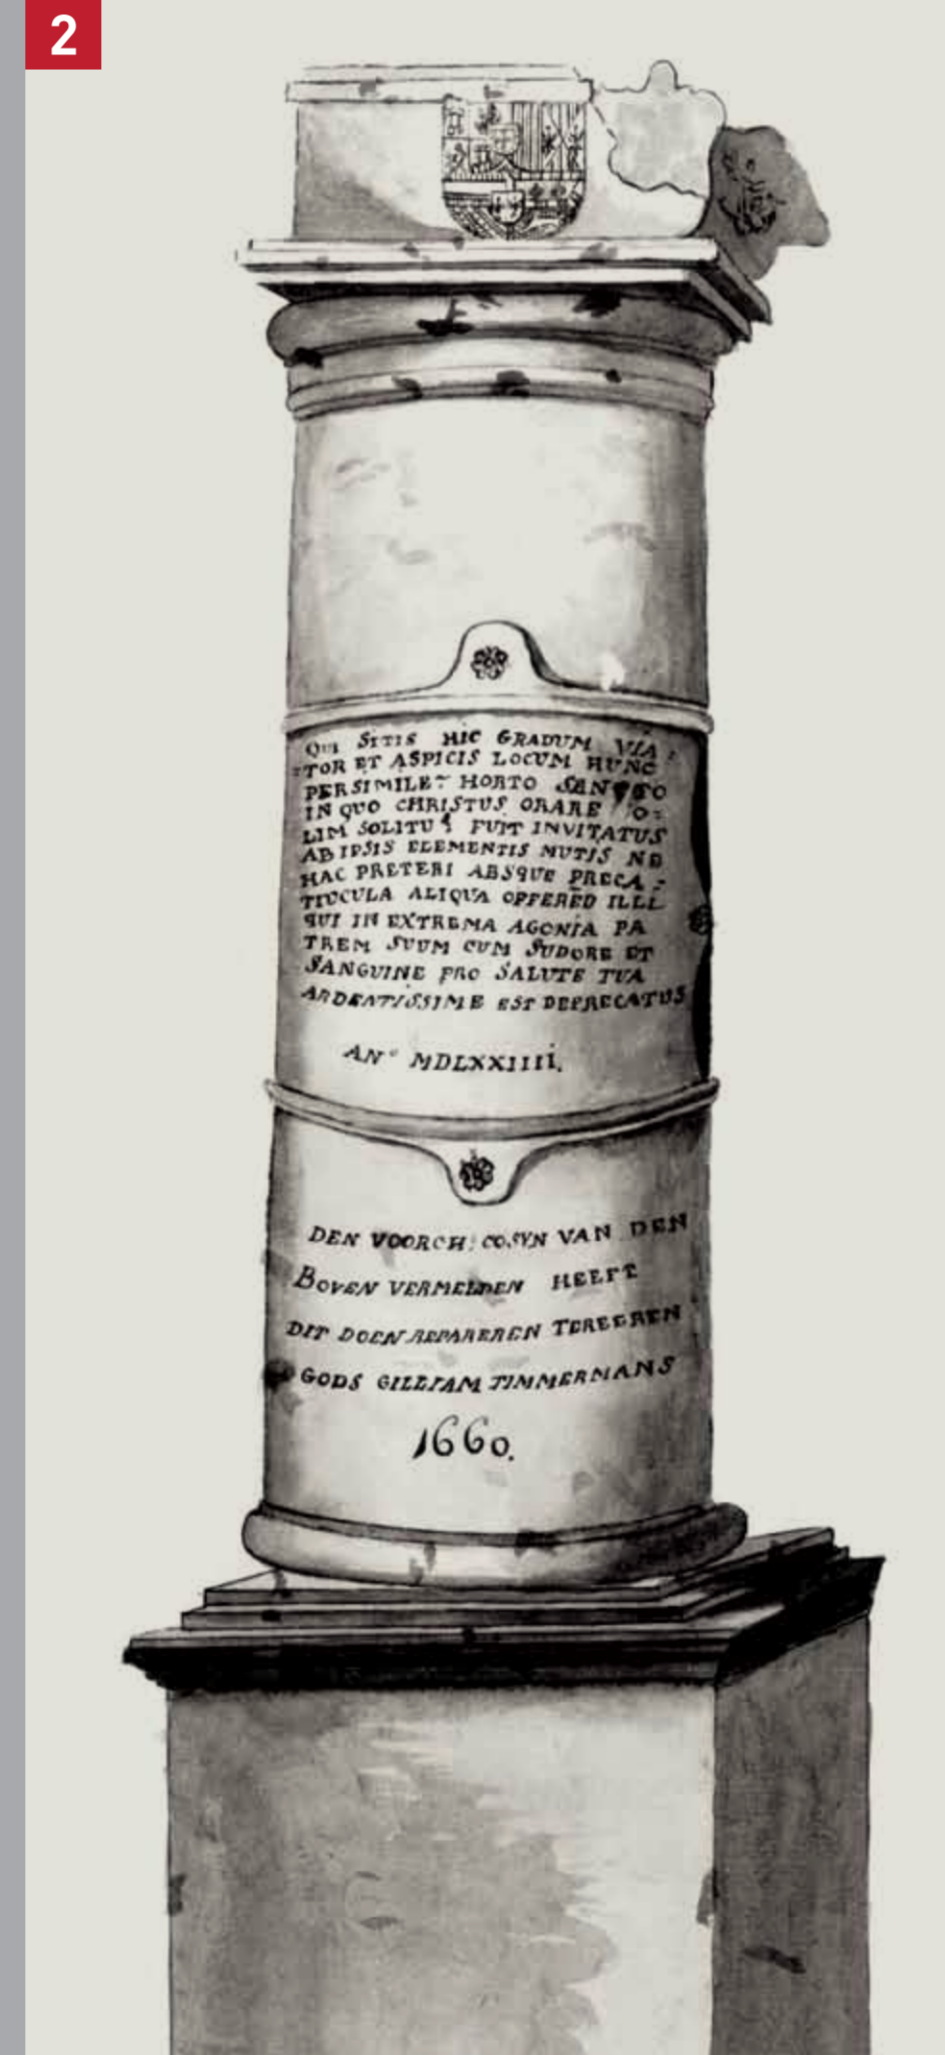 2
QUI SITIS HIC GRADUM VIA=
=TOR ET ASPICIS LOCUM HUNC
PERSIMILE~ HORTO SANCTO
IN QUO CHRISTUS ORARE O=
LIM SOLITUS FUIT INVITATUS
AB IPSIS ELEMENTIS MUTIS NE
HAC PRETERI ABSQUE PRECA=
TIUCULA ALIQUA OFFERED ILLI
QUI IN EXTREMA AGONIA PA
TREM SUUM CUM SUDORE ET
SANGUINE PRO SALUTE TUA
ARDENTISSIME EST DEPRECATUS
ANº MDLXXIIII.
DEN VOORCH: COSYN VAN DEN
BOVEN VERMELDEN HEEFT
DIT DOEN REPAREREN TEREEREN
GODS GILLIAM TIMMERMANS
1660.